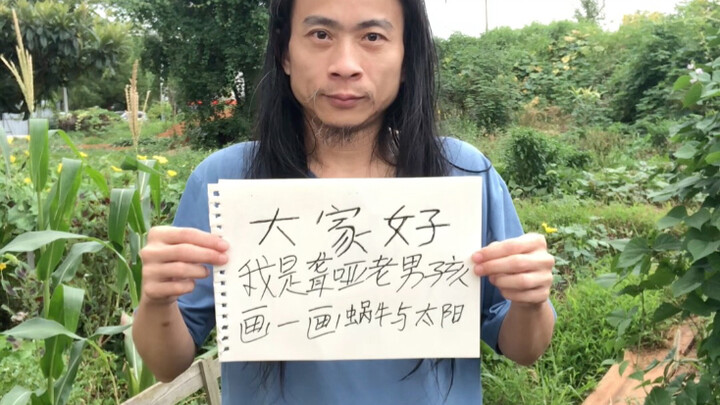 大家好
我是聋哑老男孩
画一画蜗牛与太阳